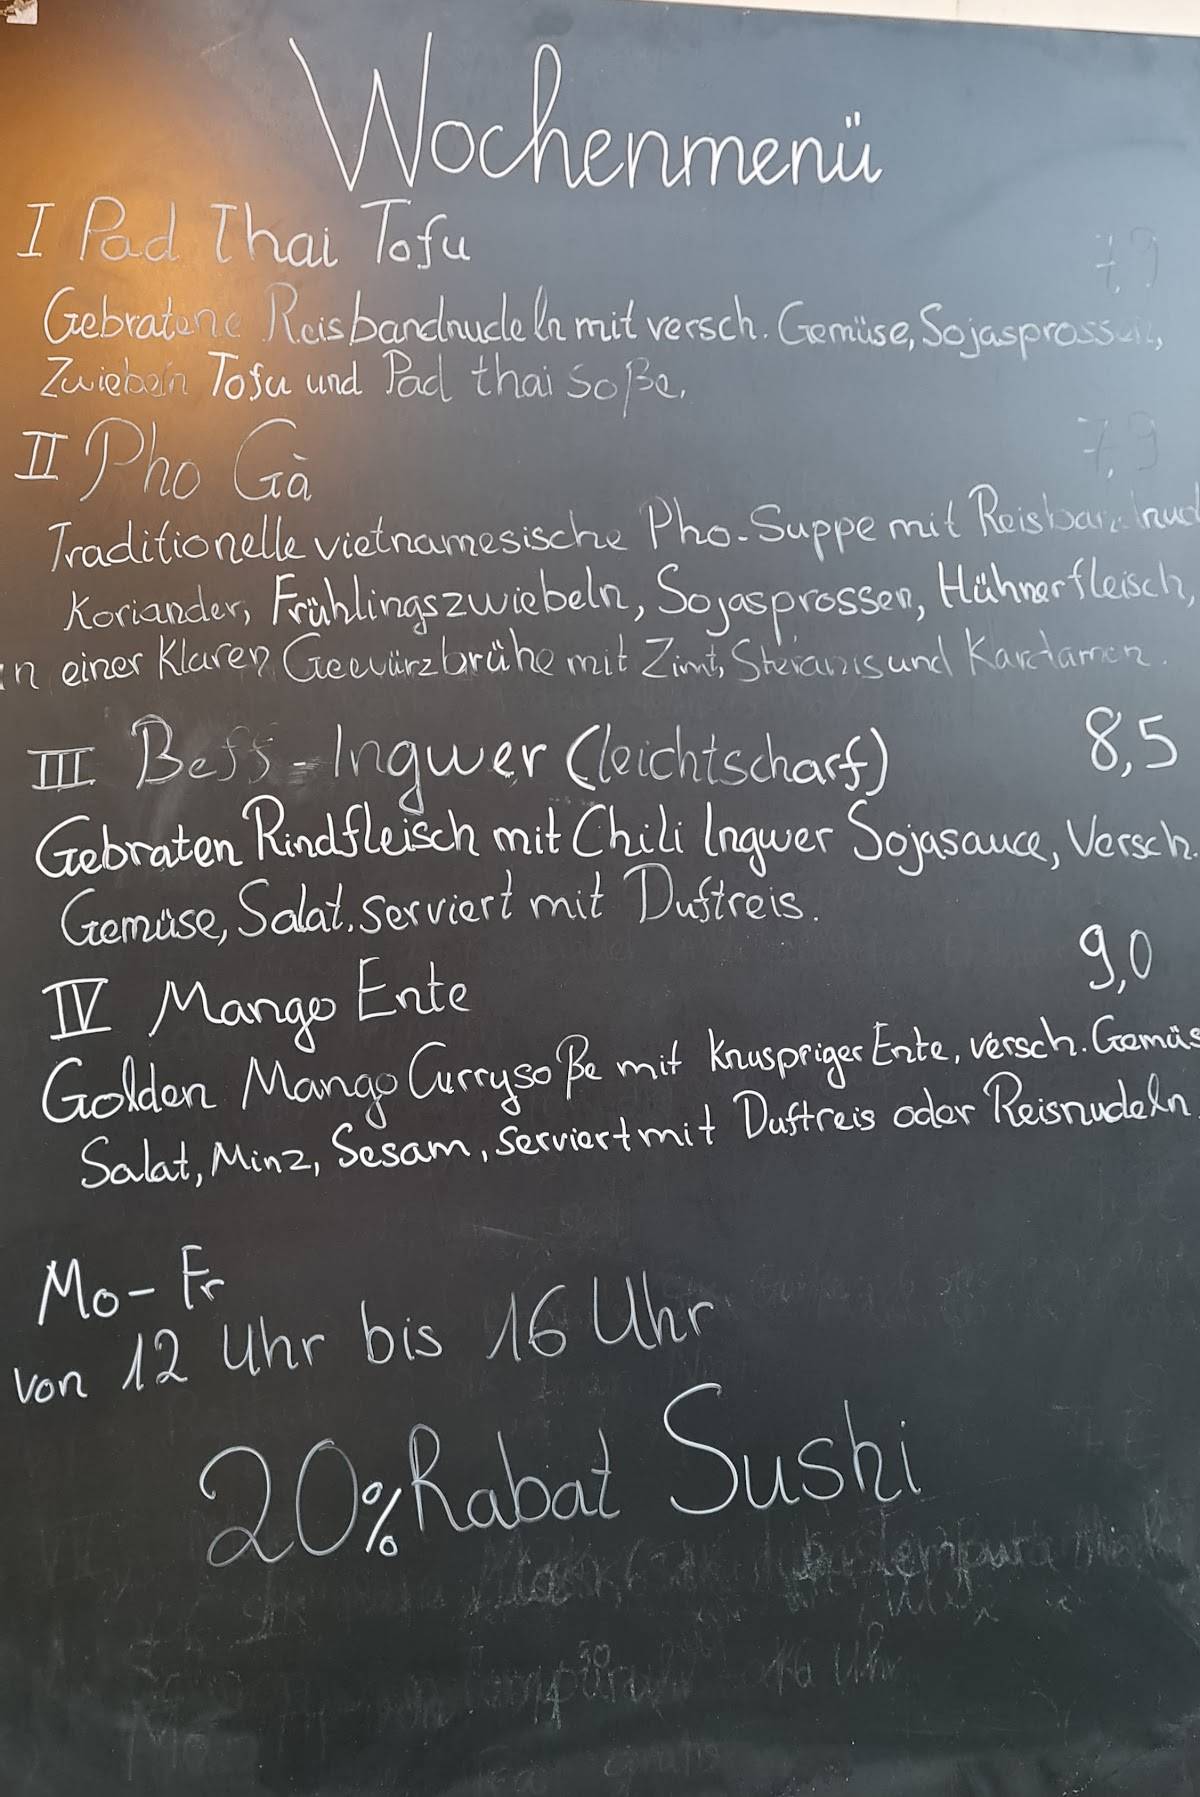 Wochenmenü
I Pad Thai Tofu 7,9
Gebratene Reisbandnudeln mit versch. Gemüse, Sojasprossen,
Zwiebeln Tofu und Pad thai Soße.
II Pho Gà 7,9
Traditionelle vietnamesische Pho-Suppe mit Reisbandnud
Koriander, Frühlingszwiebeln, Sojasprossen, Hühnerfleisch,
in einer Klaren Gewürzbrühe mit Zimt, Steranis und Kardamon.
III Beff-Ingwer (leichtscharf) 8,5
Gebraten Rindfleisch mit Chili Ingwer Sojasauce, Versch.
Gemüse, Salat, serviert mit Duftreis.
IV Mango Ente 9,0
Golden Mango Currysoße mit Knuspriger Ente, versch. Gemüs
Salat, Minz, Sesam, serviert mit Duftreis oder Reisnudeln
Mo-Fr
von 12 Uhr bis 16 Uhr
20% Rabat Sushi